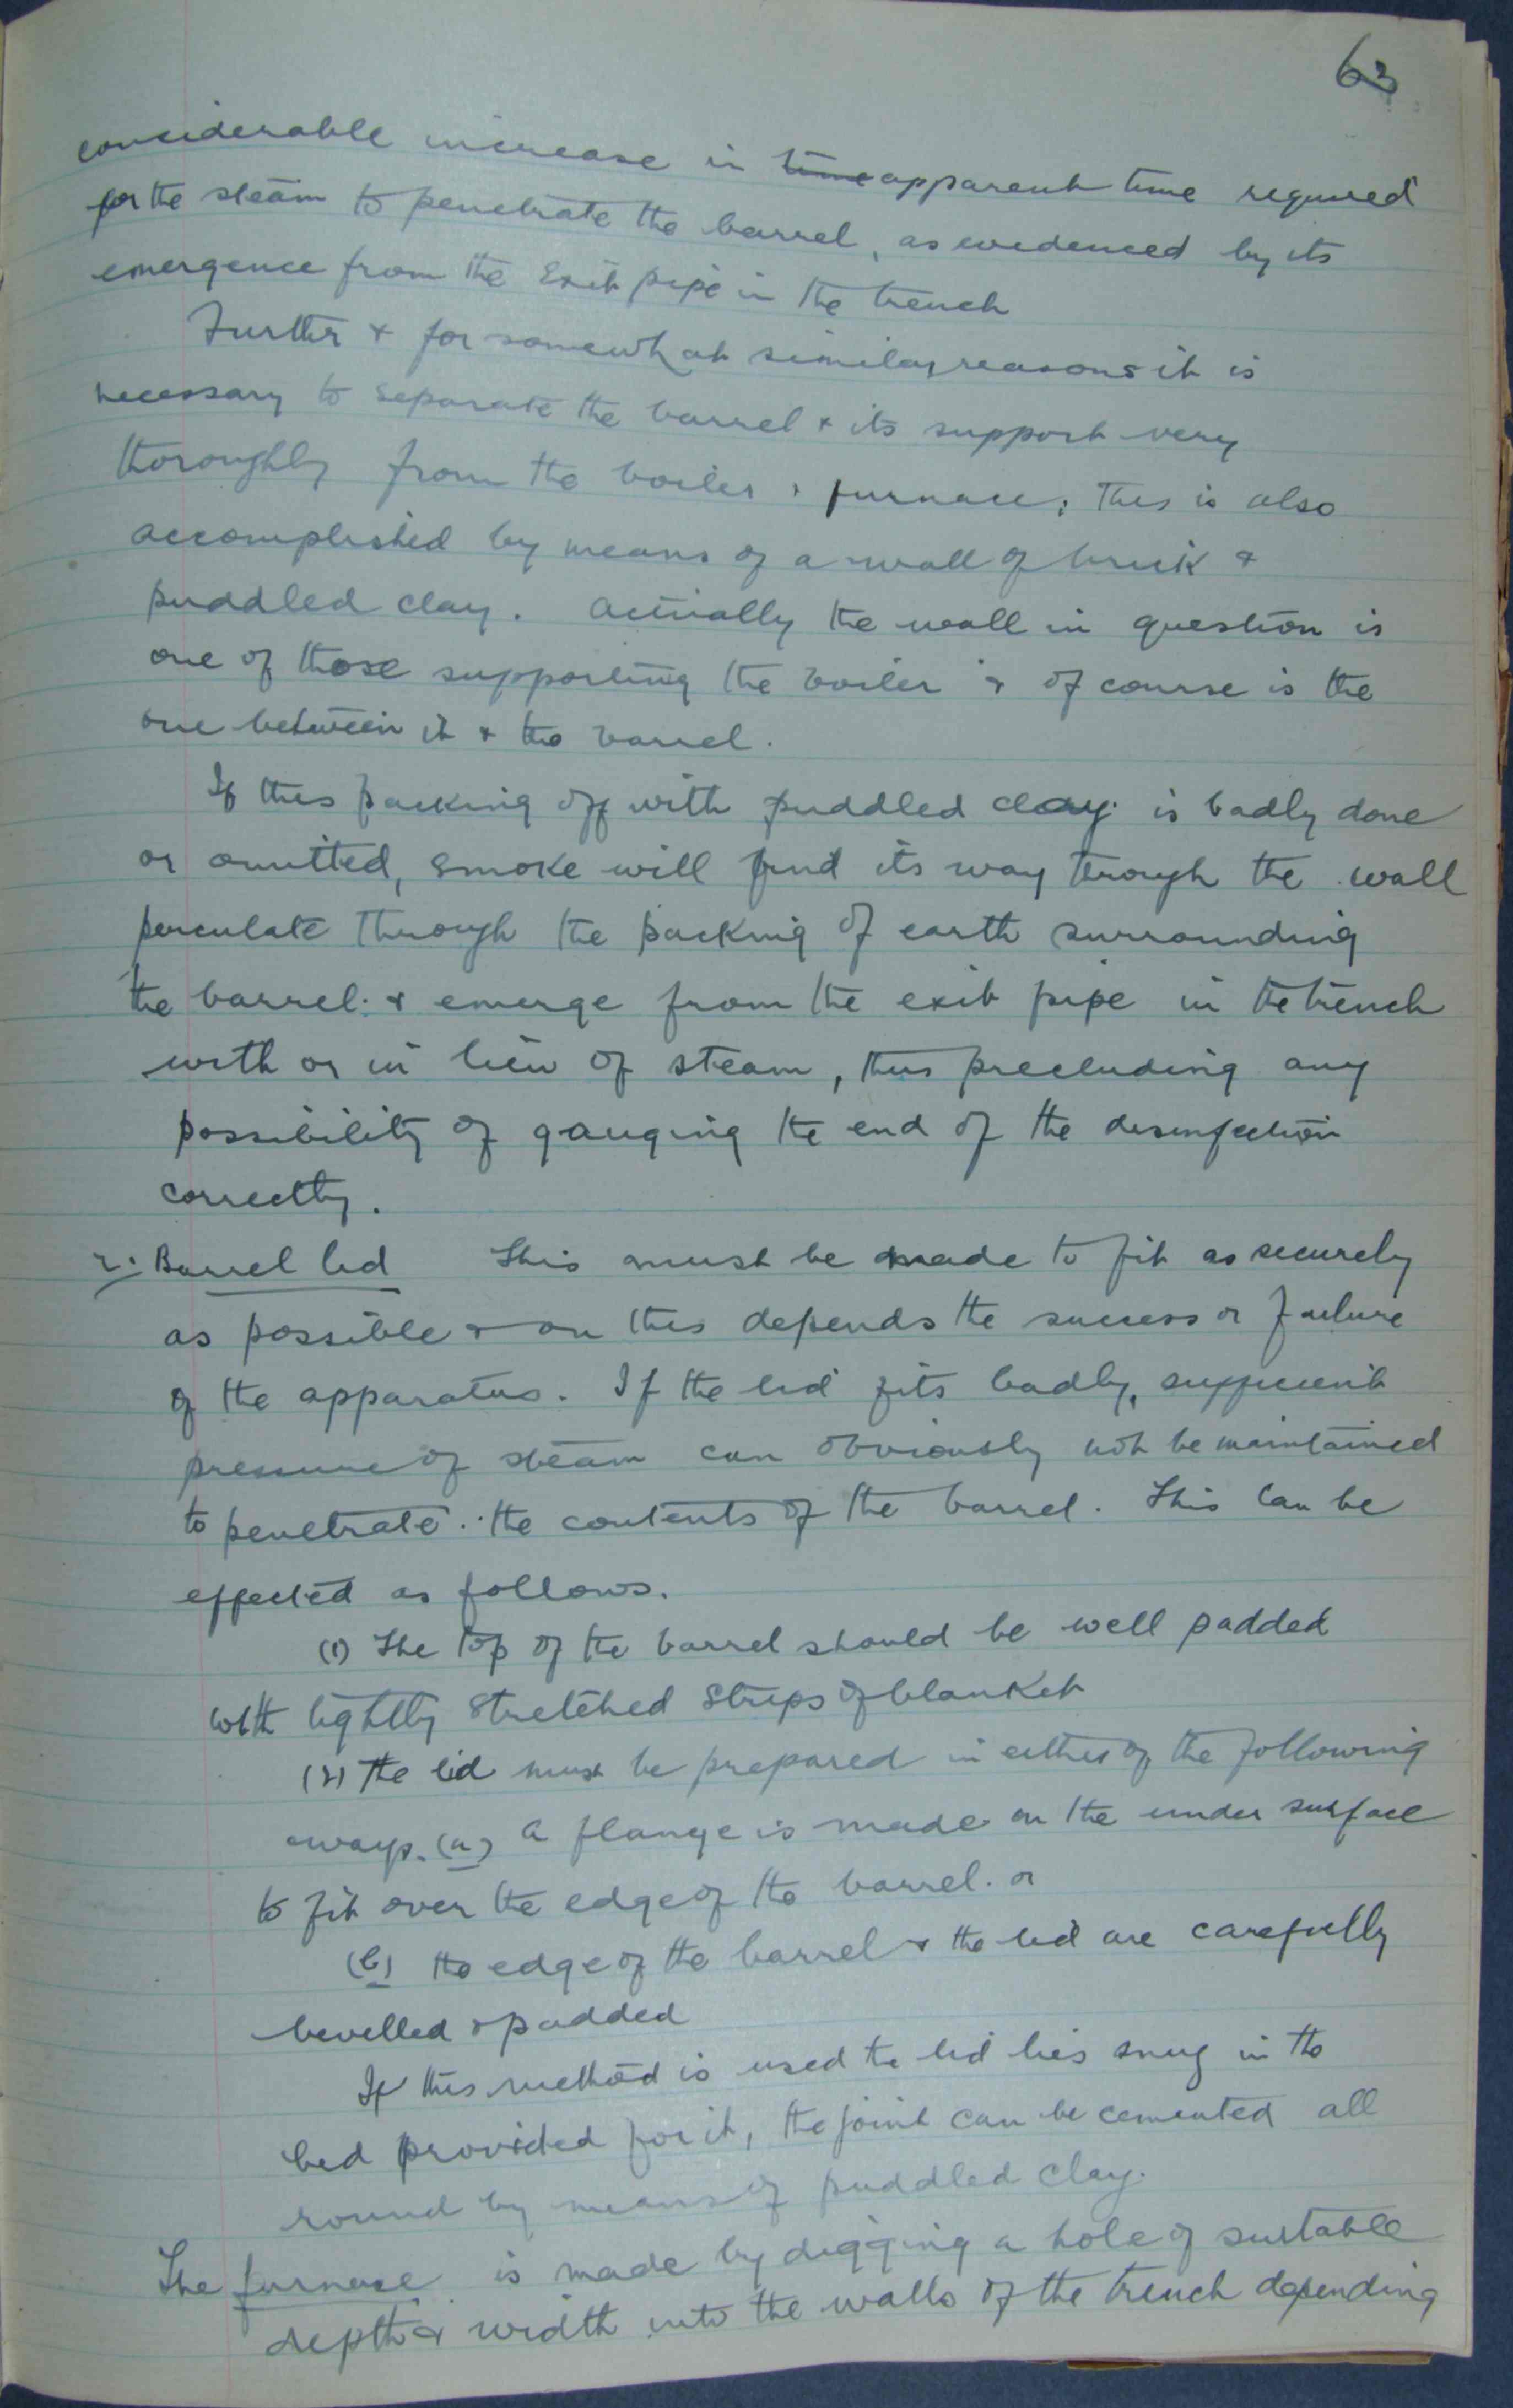 63
considerable increase in time apparent time required
for the steam to penetrate the barrel, as evidenced by its
emergence from the Exit pipe in the trench
Further & for somewhat similar reasons it is
necessary to separate the barrel & its support very
thoroughly from the boiler & furnace; This is also
accomplished by means of a wall of brick &
puddled clay. Actually the wall in question is
one of those supporting the boiler & of course is the
one between it & the barrel.
If this packing off with puddled clay is badly done
or omitted, smoke will find its way through the wall
perculate through the packing of earth surrounding
the barrel & emerge from the exit pipe in the trench
with or in lieu of steam, thus precluding any
possibility of gauging the end of the disinfection
correctly.
2. Barrel lid This must be made to fit as securely
as possible & on this depends the success or failure
of the apparatus. If the lid fits badly, sufficient
pressure of steam can obviously not be maintained
to penetrate the contents of the barrel. This can be
effected as follows.
(1) The top of the barrel should be well padded
with tightly stretched strips of blanket
(2) The lid must be prepared in either of the following
ways. (a) A flange is made on the under surface
to fit over the edge of the barrel. or
(b) the edge of the barrel & the lid are carefully
bevelled & padded
If this method is used the lid lies snug in the
bed provided for it, the joint can be cemented all
round by means of puddled clay.
The furnace is made by digging a hole of suitable
depth & width into the walls of the trench depending